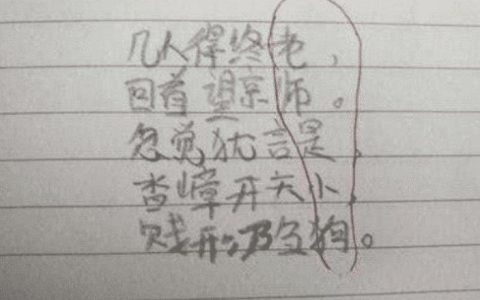 几人得终老，
回首望京师。
忽觉犹言是
杳嶂开天小
贱形乃刍狗。